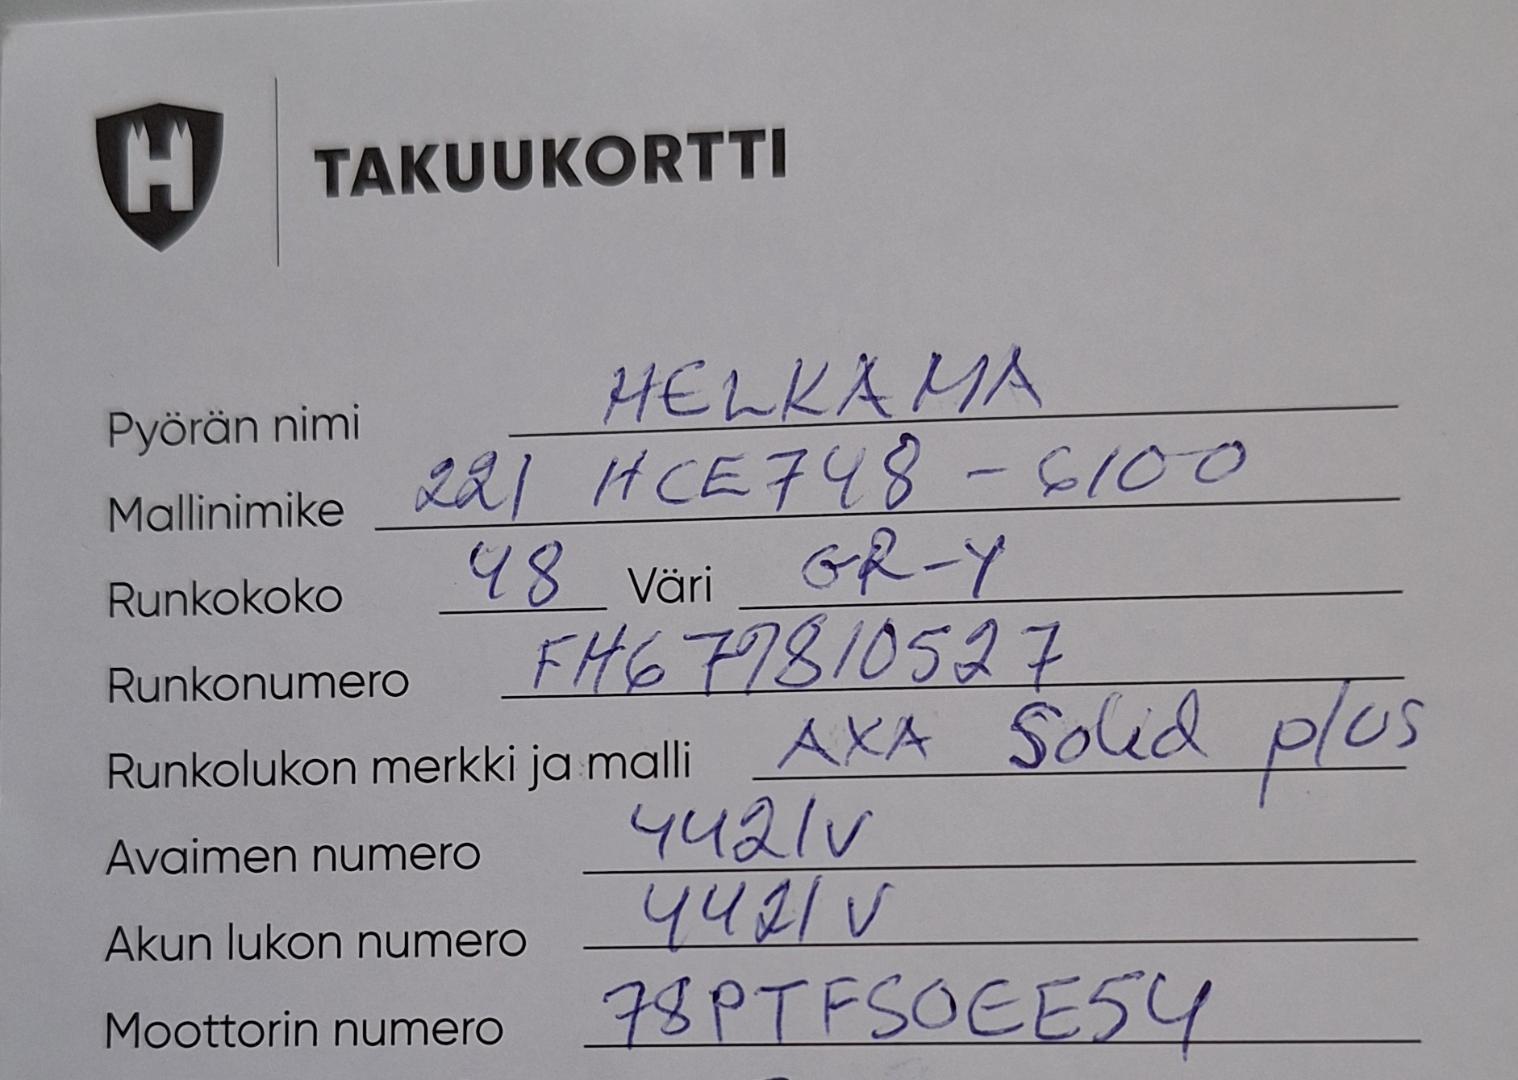 H
TAKUUKORTTI
Pyörän nimi HELKAMA
Mallinimike 221 HCE748 - 6100
Runkokoko 48 Väri GR-Y
Runkonumero FH677810527
Runkolukon merkki ja malli AXA Solid plus
Avaimen numero 4421V
Akun lukon numero 4421V
Moottorin numero 78PTFSOEE54